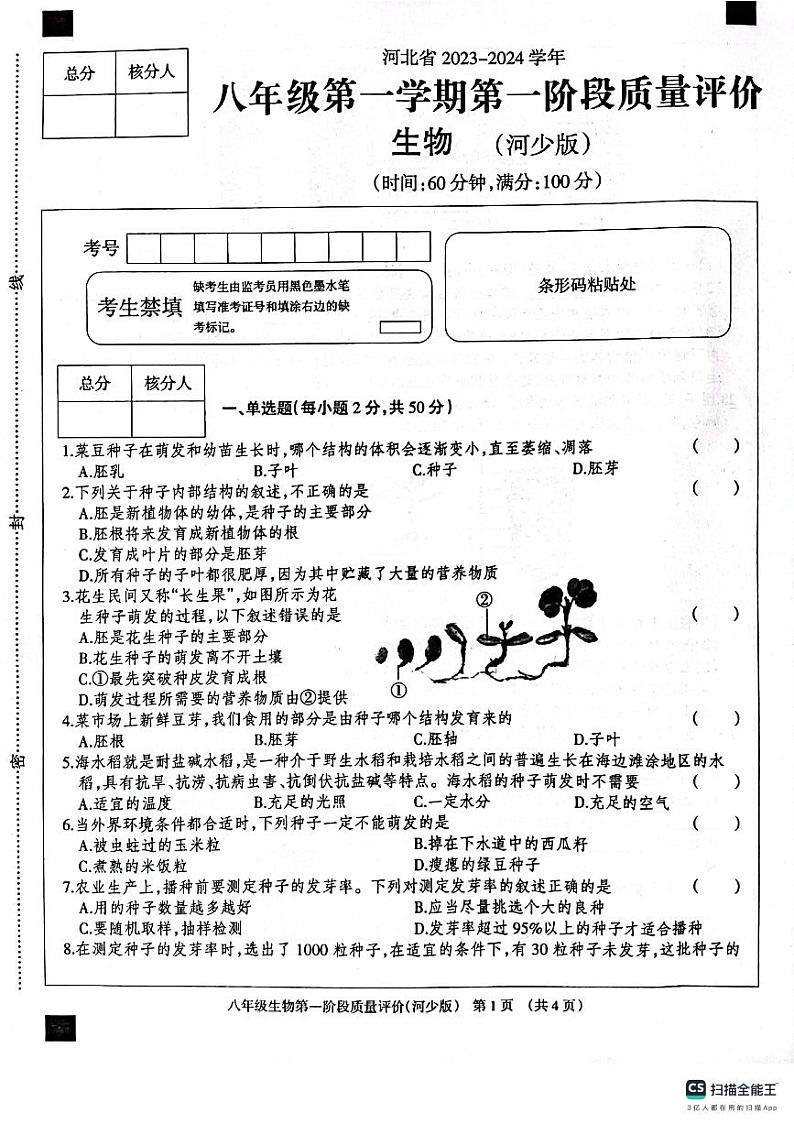 河北省 2023-2024 学年
八年级第一学期第一阶段质量评价
生物 （河少版）
（时间：60 分钟，满分：100 分）
总分 核分人
考号
考生禁填 缺考生由监考员用黑色墨水笔
填写准考证号和填涂右边的缺
考标记。
条形码粘贴处
线
封
密
总分 核分人
一、单选题（每小题 2 分，共 50 分）
1.菜豆种子在萌发和幼苗生长时，哪个结构的体积会逐渐变小，直至萎缩、凋落 （ ）
A.胚乳 B.子叶 C.种子 D.胚芽
2.下列关于种子内部结构的叙述，不正确的是 （ ）
A.胚是新植物体的幼体，是种子的主要部分
B.胚根将来发育成新植物体的根
C.发育成叶片的部分是胚芽
D.所有种子的子叶都很肥厚，因为其中贮藏了大量的营养物质
3.花生民间又称“长生果”，如图所示为花
生种子萌发的过程，以下叙述错误的是 （ ）
A.胚是花生种子的主要部分
B.花生种子的萌发离不开土壤
C.①最先突破种皮发育成根
D.萌发过程所需要的营养物质由②提供
②
①
4.菜市场上新鲜豆芽，我们食用的部分是由种子哪个结构发育来的 （ ）
A.胚根 B.胚芽 C.胚轴 D.子叶
5.海水稻就是耐盐碱水稻，是一种介于野生水稻和栽培水稻之间的普遍生长在海边滩涂地区的水
稻，具有抗旱、抗涝、抗病虫害、抗倒伏抗盐碱等特点。海水稻的种子萌发时不需要 （ ）
A.适宜的温度 B.充足的光照 C.一定水分 D.充足的空气
6.当外界环境条件都合适时，下列种子一定不能萌发的是 （ ）
A.被虫蛀过的玉米粒 B.掉在下水道中的西瓜籽
C.煮熟的米饭粒 D.瘪瘪的绿豆种子
7.农业生产上，播种前要测定种子的发芽率。下列对测定发芽率的叙述正确的是 （ ）
A.用的种子数量越多越好 B.应当尽量挑选个大的良种
C.要随机取样，抽样检测 D.发芽率超过 95%以上的种子才适合播种
8.在测定种子的发芽率时，选出了 1000 粒种子，在适宜的条件下，有 30 粒种子未发芽，这批种子的
八年级生物第一阶段质量评价（河少版） 第 1 页 （共 4 页）
CS 扫描全能王
3亿人都在用的扫描App